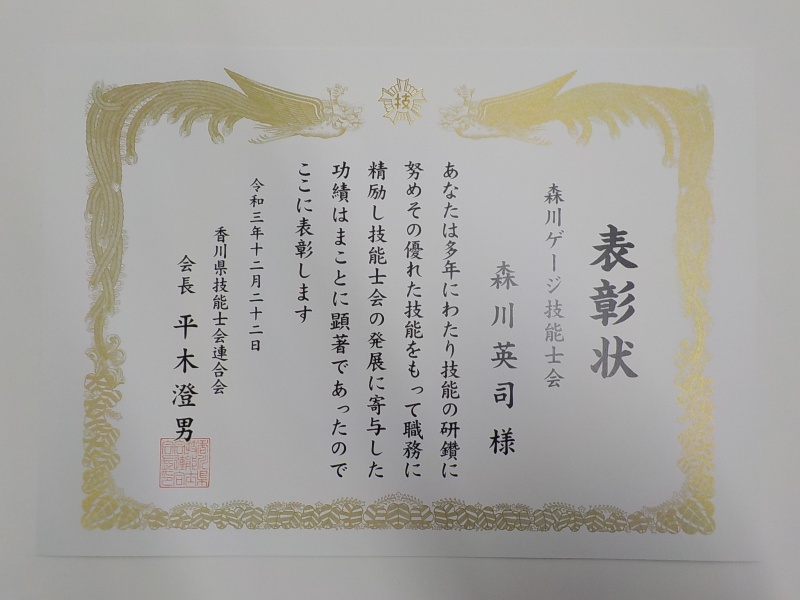 技
表彰状
森川ゲージ技能士会
森川英司様
あなたは多年にわたり技能の研鑽に
努めその優れた技能をもって職務に
精励し技能士会の発展に寄与した
功績はまことに顕著であったので
ここに表彰します
令和三年十二月二十二日
香川県技能士会連合会
会長 平木澄男